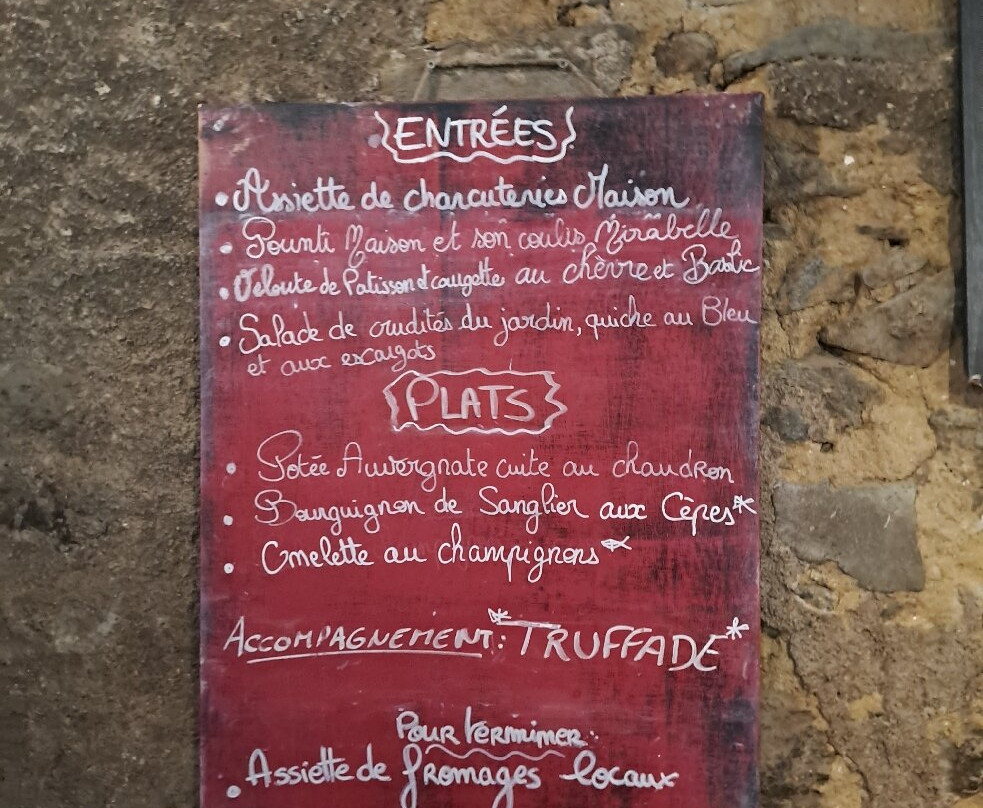 ENTRÉES
• Assiette de charcuteries Maison
• Pounti Maison et son coulis Mirabelle
• Veloute de Patisson et cougette au chèvre et Basilic
• Salade de crudités du jardin, quiche au Bleu
et aux escargots
PLATS
• Potée Auvergnate cuite au chaudron
• Bourguignon de Sanglier aux Cèpes*
• Omelette au champignons*
ACCOMPAGNEMENT: *TRUFFADE*
POUR TERMINER:
• Assiette de fromages locaux